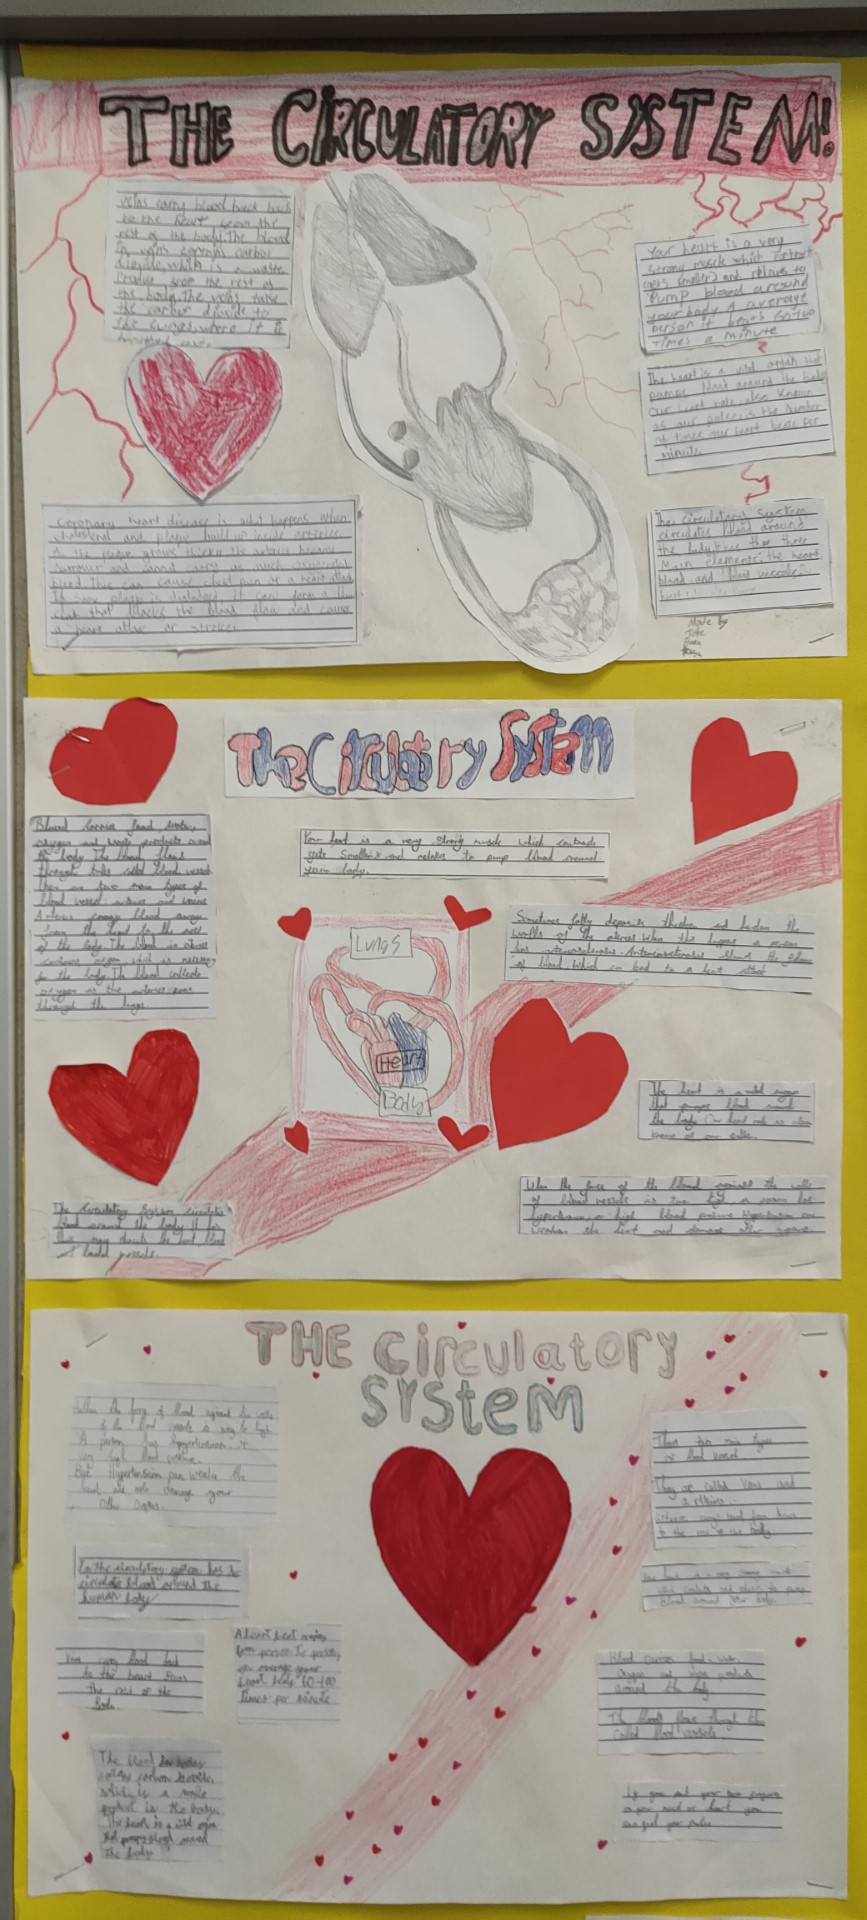 THE CIRCULATORY SYSTEM!
veins carry blood back back
to the heart from the
rest of the body. The blood
in veins contain carbor
dioxide, which is a waste
produce from the rest of
the body. The veins take
the carbon dioxide to
the lungs, where it is
Your heart is a very
strong muscle which contract
(gets smaller) and relaxes to
Pump blood around
your body A average
person it bears 60-100
times a minute
The heart is a vital organ that
pumps blood around the body
Our heart rate, also known
as our pulse, is the number
of times our heart beats per
minute.
Coronary heart disease is what happens when
cholesterol and plaque build up inside arteries.
As the plaque grows thicker the arteries became
narrower and cannot carry as much oxygenated
blood. This can cause chest pain or a heart attack
If some plaque is dislodged it can form a
clot that blocks the blood flow and cause
a heart attac or stroke.
The circulatory system
circulates blood around
the body. It has three
Main elements: the heart
blood and blood vessels.
Made by
The Circulatory System
Your heart is a very strong muscle which contracts
gets smaller and relaxes to pump blood around
your body.
Blood carries food, water,
oxygen and waste products around
the body. The blood flows
through tubes called blood vessels
There are two main types of
blood vessel: arteries and veins
Arteries carry blood away
from the heart to the rest
of the body. The blood in arteries
contains oxygen, which is necessary
for the body. The blood collects
oxygen as the arteries pass
through the lungs
Lungs
Heart
Body
Sometimes fatty deposits thicken and harden the
walls of the arteries. When this happens a person
has
of blood. Which can lead to a heart attack
The heart is a vital organ
that pumps blood around
the body. Our heart rate is also
known as our pulse.
When the force of the blood against the walls
of blood vessels is too high a person has
hypertension, or high blood pressure. Hypertension can
weaken the heart and damage other organs
The circulatory System circulates
blood around the body. It
blood vessels.
THE Circulatory
SYSTEM
When the force of blood against the walls
of the blood vessels is way to high
A person has hypertension, or
very high blood pressure.
But Hypertension can weaken the
heart and also damage your
Other Organs.
Their two main types
of blood vessel.
They are called Veins and
to the rest of the body.
In the circulatory system has to
circulate blood around the
human body
blood around your body.
Veins carry blood back
to the heart from
the rest of the
Body.
A heart beat varies
from person to person,
on average your
heart beats 60-100
times per minute
Blood carries food, water,
Oxygen and waste products
around the body
The blood flows through tubes
Called blood vessels.
The blood in veins
carbon dioxide,
which is a waste
product in the body.
The heart is a vital organ
that pumps blood around
the body
If you put your two fingers
on your neck or heart you
can feel your pulse